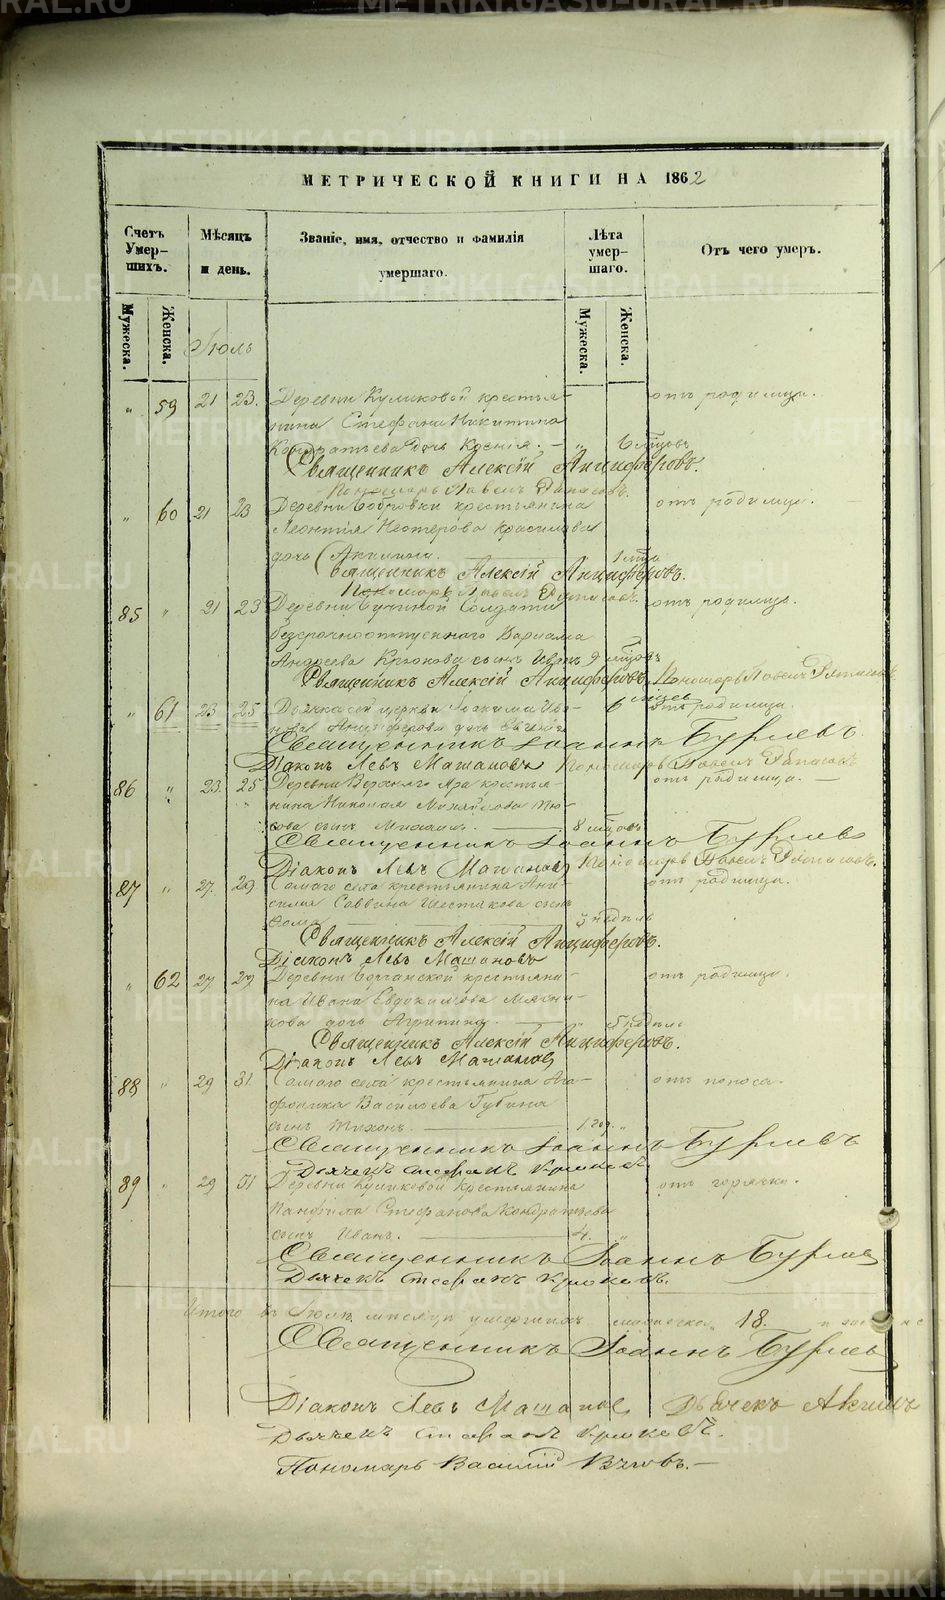 МЕТРИЧЕСКОЙ КНИГИ НА 1862
Счетъ Умер-шихъ.
Мѣсяцъ и день.
Званіе, имя, отчество и фамилія умершаго.
Лѣта умер-шаго.
Отъ чего умеръ.
Мужеска.
Женска.
Мужеска.
Женска.
Іюль
„ 59 21 23. Деревни Куликовой крестья- отъ родимца.
нина Стефана Никитина
Кондратьева дочь Ксенія. — „ 6 мцовъ
Священникъ Алексій Анциферовъ.
Пономарь Павелъ
„ 60 21 23 Деревни Бобровки крестьянина отъ родимца.
Леонтія Нестерова Красилова
дочь Акилина. 1 мца
Священникъ Алексій Анциферовъ.
Пономарь Павелъ
85 „ 21 23 Деревни Солдата отъ родимца.
безсрочноотпускнаго Варлама
Андреева Крюкова сынъ Иванъ 9 мцовъ
Священникъ Алексій Анциферовъ. Пономарь Павелъ
„ 61 23 25 церкви Іоакима Ива- 6 мцевъ отъ родимца.
нова Анциферова дочь Евгенія
Священникъ Іоаннъ Бурлевъ.
Діаконъ Левъ Машановъ Пономарь Павелъ
86 „ 23. 25 Деревни Яра крестья- отъ родимца. —
нина Николая Михайлова
сынъ Михаилъ. 8 мцовъ
Священникъ Іоаннъ Бурлевъ
Діаконъ Левъ Машановъ Пономарь Павелъ
87 „ 27. 29 Самаго села крестьянина отъ родимца.
Саввина Шестакова сынъ
Ѳома 3 недѣль
Священникъ Алексій Анциферовъ.
Діаконъ Левъ Машановъ
„ 62 27 29 Деревни крестьяни- отъ родимца.
на Ивана Евдокимова Мясни-
кова дочь Агрипина. — „ 5 недѣль
Священникъ Алексій Анциферовъ.
Діаконъ Левъ Машановъ
88 „ 29 31. Самаго села крестьянина Ага- отъ поноса.
фоника Васильева Губина
сынъ Тихонъ. 1 год. „
Священникъ Іоаннъ Бурлевъ
Дьячекъ Стефанъ Крюковъ.
89 „ 29 31 Деревни Куликовой Крестьянина отъ горячки.
Панфила Стефанова Кондратьева
сынъ Иванъ. 4. „
Священникъ Іоаннъ Бурлевъ
Дьячекъ Стефанъ Крюковъ.
Итого въ Іюлѣ мѣсяцѣ умершихъ мужеска 18.
Священникъ Іоаннъ Бурлевъ
Діаконъ Левъ Машановъ Дьячекъ Акимъ
Дьячекъ Стефанъ Крюковъ.
Пономарь Василій
METRIKI.GASO-URAL.RU